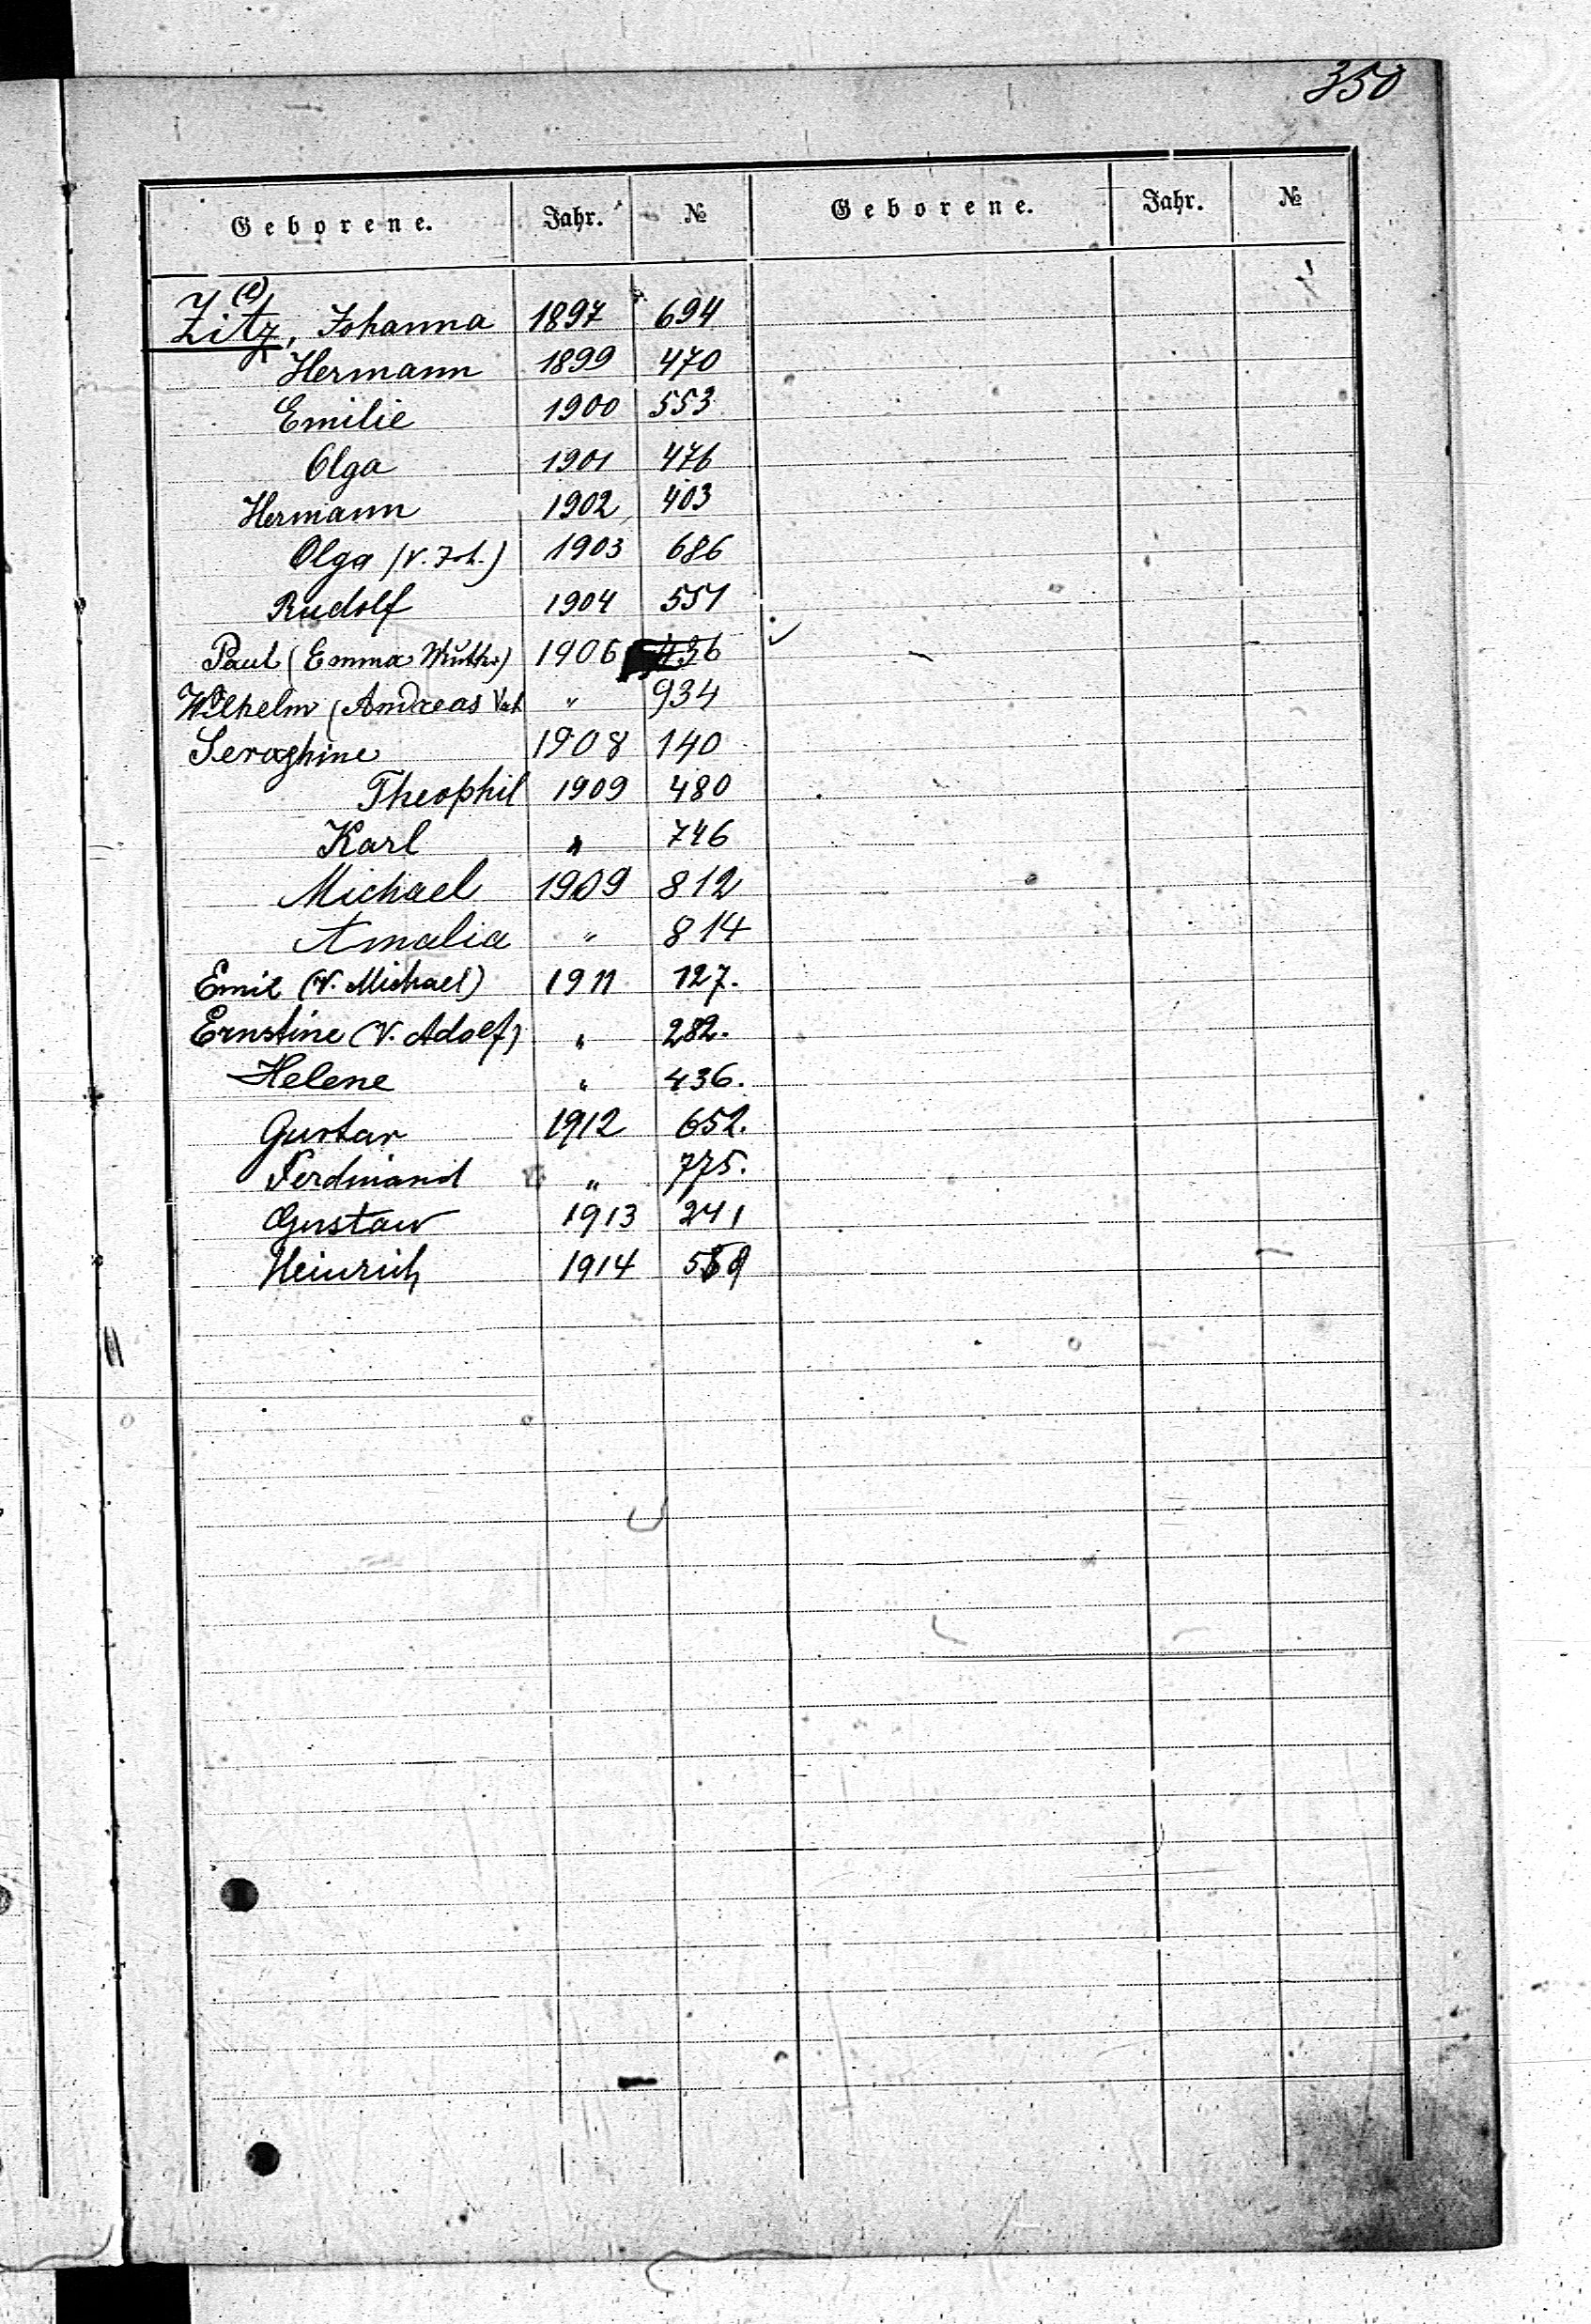 350
Geborene. Jahr. № Geborene. Jahr. №
Zit(e)z, Johanna 1897 694
Hermann 1899 470
Emilie 1900 553
Olga 1901 476
Hermann 1902 403
Olga (V. Joh.) 1903 686
Rudolf 1904 551
Paul (Emma Mutter) 1906 436
Wilhelm (Andreas Vat. " 934
Seraphine 1908 140
Theophil 1909 480
Karl " 746
Michael 1909 812
Amalia " 814
Emil (V. Michael) 1911 127.
Ernstine (V. Adolf) " 282.
Helene " 436.
Gustav 1912 652.
Ferdinand " 775.
Gustaw 1913 241
Heinrich 1914